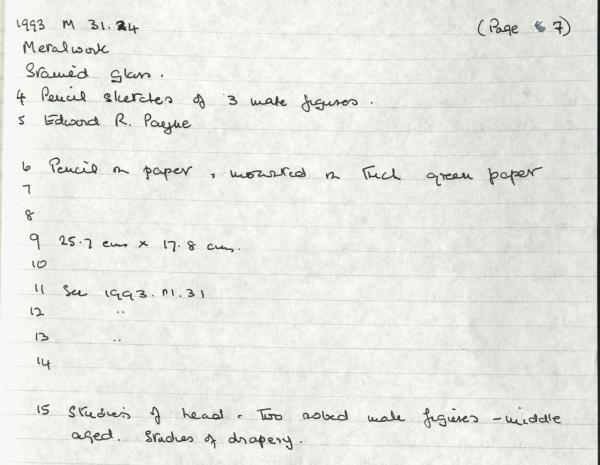 1993 M 31.24 (Page 7)
Metalwork
Stained glass.
4 Pencil sketches of 3 male figures.
5 Edward R. Payne
6 Pencil on paper, mounted on thick green paper
7
8
9 25.7 cms × 17.8 cms.
10
11 See 1993.M.31
12 "
13 "
14
15 Studies of head. Two robed male figures - middle
aged. Studies of drapery.